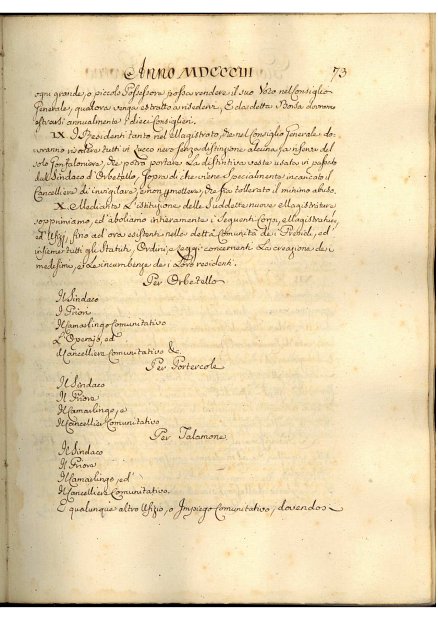 Anno MDCCCIII 73
ogni grande, o piccolo Possessore possa vendere il suo Voto nel Consiglio
Generale, qualora venga estratto a risedere, E da detta Borsa dovranno
estrarsi annualmente Dieci Consiglieri.
IX. I Residenti tanto nel Magistrato, che nel Consiglio Generale do-
vranno vestire tutti in Lucco nero senza distinzione alcuna, a riserva del
solo Gonfaloniere, che potrà portare La distintiva veste usata in passato
dal Sindaco d'Orbetello, sopra di che viene specialmente incaricato il
Cancelliere di invigilare, e non permettere, che sia tollerato il minimo abuso.
X. Mediante L'istituzione delle Suddette nuove Magistrature
sopprimiamo, ed aboliamo interamente i seguenti Corpi, Magistrature,
ed Ufizj, fino ad ora esistenti nelle detta Comunità de i Presidj, ed
insieme tutti gli Statuti, Ordini, e Leggi concernenti La creazione de i
medesimi, e Le incumbenze de i Loro residenti.
Per Orbetello
Il Sindaco
I Priori
Il Camarlingo Comunitativo
L'Operajo, ed
Il Cancelliere Comunitativo &c.
Per Portercole
Il Sindaco
Il Priore
Il Camarlingo, e
Il Cancellier Comunitativo
Per Talamone
Il Sindaco
Il Priore
Il Camarlingo, ed
Il Cancelliere Comunitativo.
E qualunque altro Ufizio, o Impiego Comunitativo, dovendosi